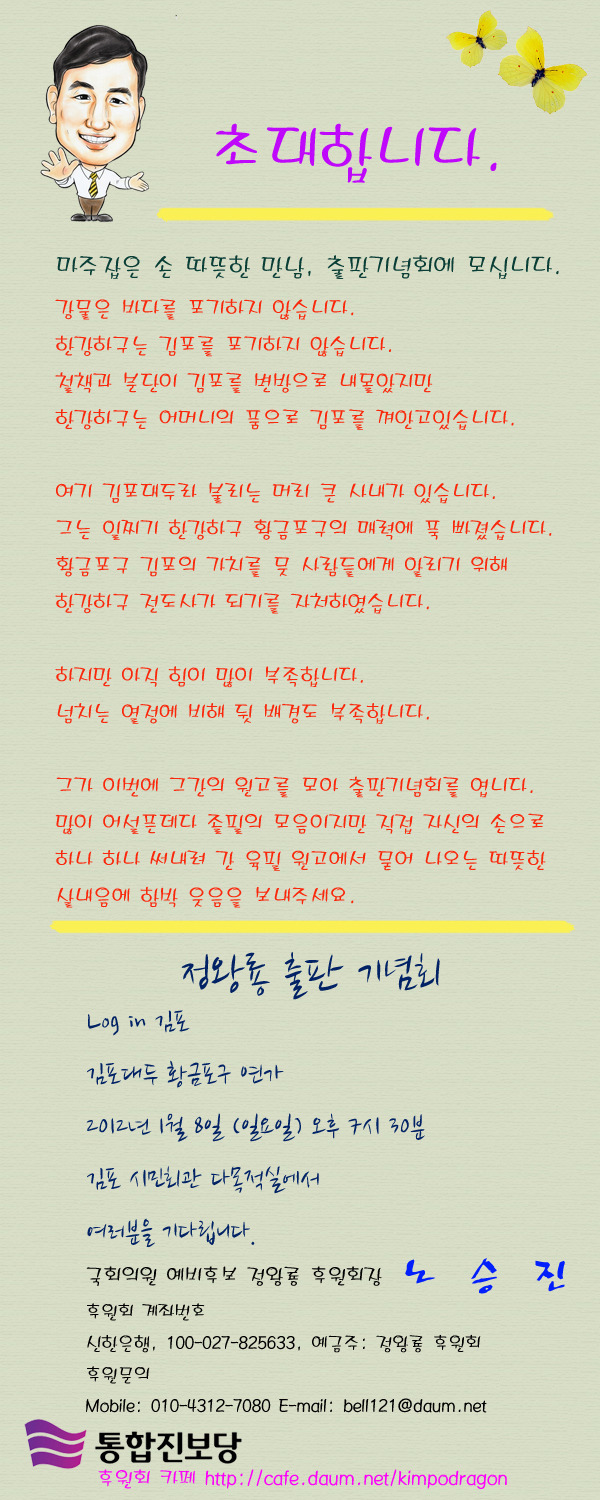 초대합니다.
마주잡은 손 따뜻한 만남, 출판기념회에 모십니다.
강물은 바다를 포기하지 않습니다.
한강하구는 김포를 포기하지 않습니다.
철책과 분단이 김포를 변방으로 내몰았지만
한강하구는 어머니의 품으로 김포를 껴안고있습니다.
여기 김포대두라 불리는 머리 큰 사내가 있습니다.
그는 일찌기 한강하구 황금포구의 매력에 푹 빠졌습니다.
황금포구 김포의 가치를 뭇 사람들에게 알리기 위해
한강하구 전도사가 되기를 자처하였습니다.
하지만 아직 힘이 많이 부족합니다.
넘치는 열정에 비해 뒷 배경도 부족합니다.
그가 이번에 그간의 원고를 모아 출판기념회를 엽니다.
많이 어설픈데다 졸필의 모음이지만 직접 자신의 손으로
하나 하나 써내려 간 육필 원고에서 묻어 나오는 따뜻한
살내음에 함박 웃음을 보내주세요.
정왕룡 출판 기념회
Log in 김포
김포대두 황금포구 연가
2012년 1월 8일 (일요일) 오후 7시 30분
김포 시민회관 다목적실에서
여러분을 기다립니다.
국회의원 예비후보 정왕룡 후원회장 노 승 진
후원회 계좌번호
신한은행, 100-027-825633, 예금주: 정왕룡 후원회
후원문의
Mobile: 010-4312-7080 E-mail: bell121@daum.net
통합진보당
후원회 카페 http://cafe.daum.net/kimpodragon